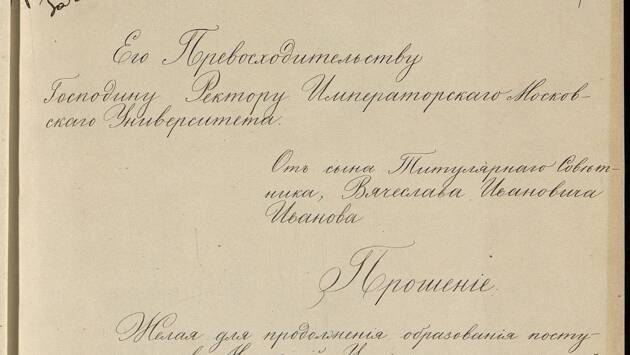 Его Превосходительству
Господину Ректору Императорскаго Москов-
скаго Университета.
Отъ сына Титулярнаго Совѣт-
ника, Вячеслава Ивановича
Иванова
Прошеніе.
Желая для продолженія образованія посту-